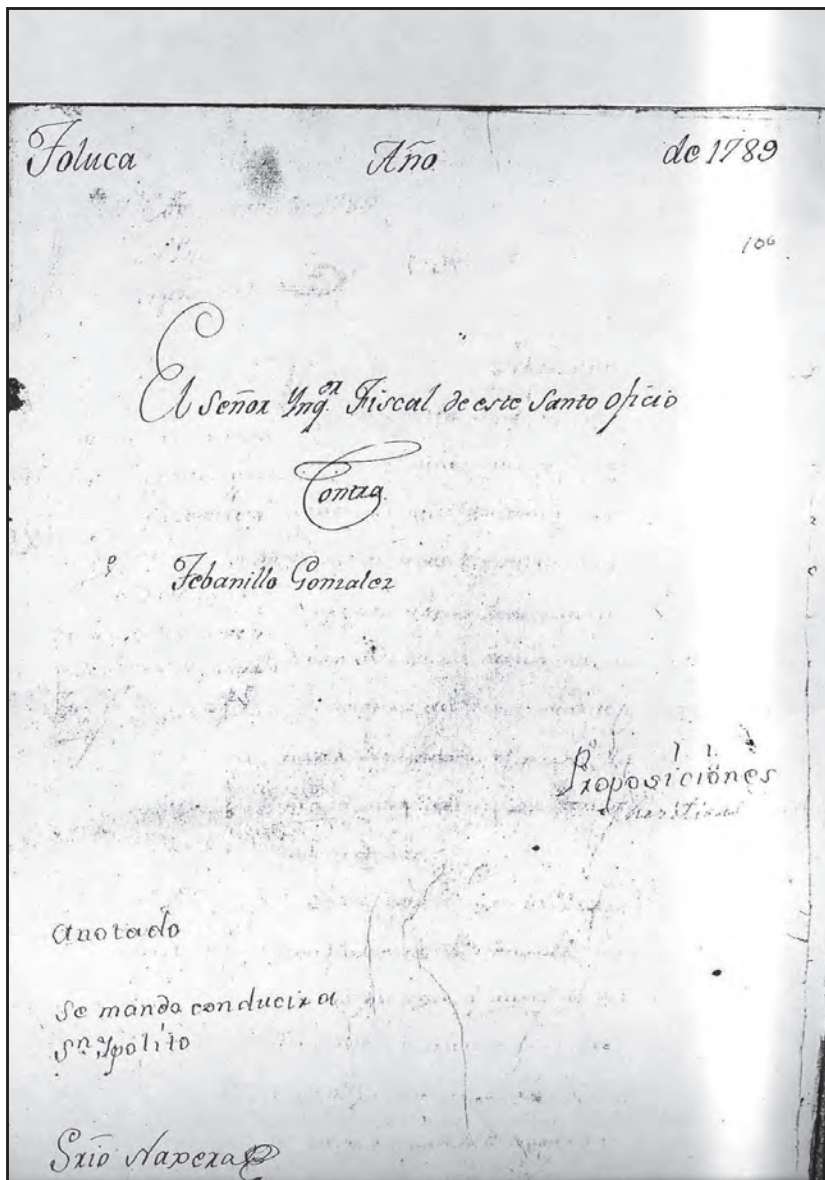 Toluca Año de 1789
106
El Señor Ynq.or Fiscal de este Santo oficio
Contra
Tebanillo Gonzalez
Proposiciones
anotado
Se mando conducir a
Sn. Ypolito
Srio Naxera